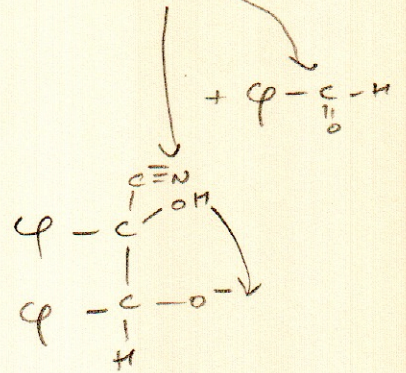 + φ - C - H
O
C≡N
φ - C - OH
φ - C - O⁻
H